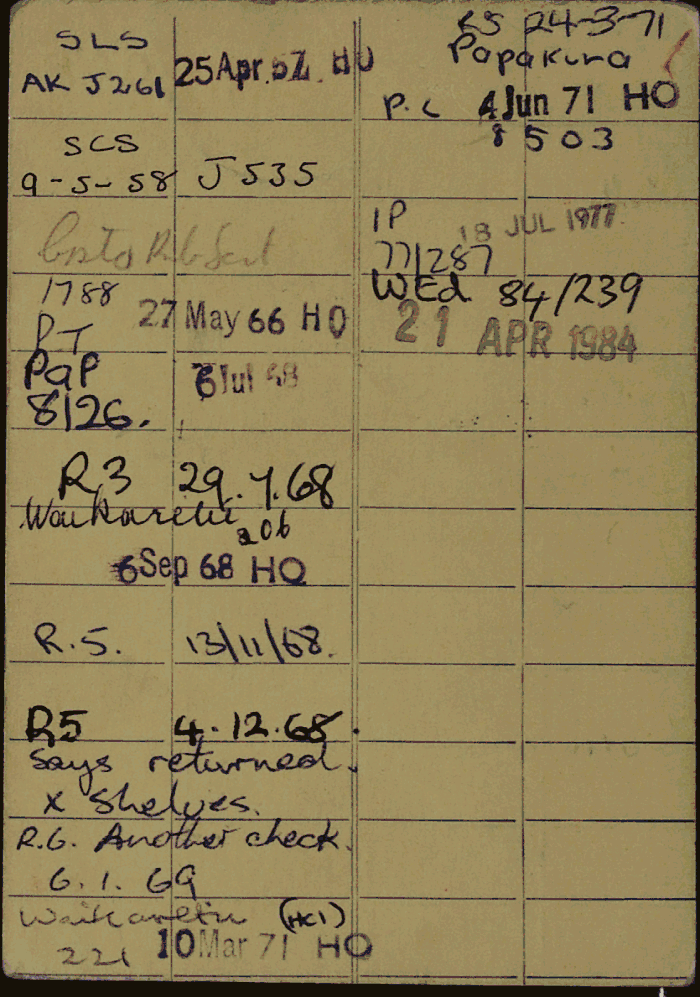 SLS
AK J261 25 Apr 57 HO
SCS
9-5-58 J535
1788
PT 27 May 66 HO
Pap 6 Jul 68
8126.
R3 29.7.68
Waikaretu
206
6 Sep 68 HO
R.5. 13/11/68.
R5 4.12.68.
Says returned.
x Shelves.
R.6. Another check.
6.1.69
Waikaretu (HC1)
221 10 Mar 71 HO
RS 24-3-71
Papakura
P.C 4 Jun 71 HO
8503
IP 18 JUL 1977
77/287
WEd. 84/239
21 APR 1984